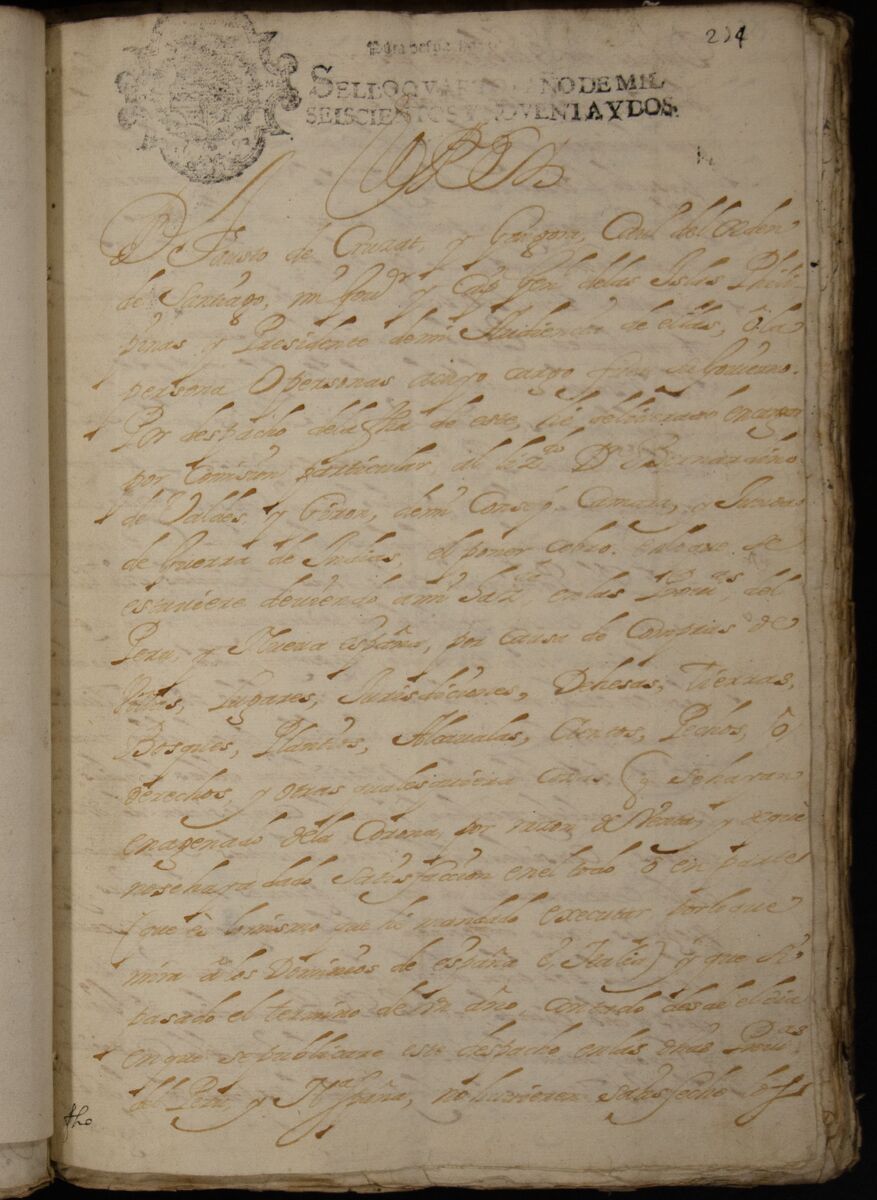 214
SELLO QVARTO AÑO DE MIL
SEISCIENTOS Y NOVENTA Y DOS.
Dn Fausto de Cruzat, y Gongora, Caull del Orden
de Santiago, mi Gouor y Capn Genl de las Islas Phili
pinas y Presidente de mi Audiencia de ellas, ô la
persona O personas a cuyo cargo fuere su Gouierno.
Por despacho de la fha de este, he deliberado encargar
por Comision particular, al lizdo Dn Bernardino
de Valdes y Giron, de mi Consejo Camara, y Junta
de Guerra de Indias, el poner cobro en lo que se
estuuiere deuiendo a mi Hazda en las Prouas del
Peru, y Nueua españa, por causa de Compras de
Villas, Lugares, Jurisdiciones, Dehesas, Tierras,
Bosques, Plantios, Alcaualas, Cientos, Pechos, ô
derechos y otras qualesquiera cosas q se haian
enagenado de la Corona, por razon de Venta, y de que
no se haya dado satisfaccion en el todo ô en parte
(que es lo mismo que he mandado executar por lo que
mira â los Dominios de españa é Italia) y que si
pasado el termino de un año, contado desde el dia
en que se publicare este despacho en las dhas Prouas
del Peru y Na España, no huuieren satisfecho los
fho